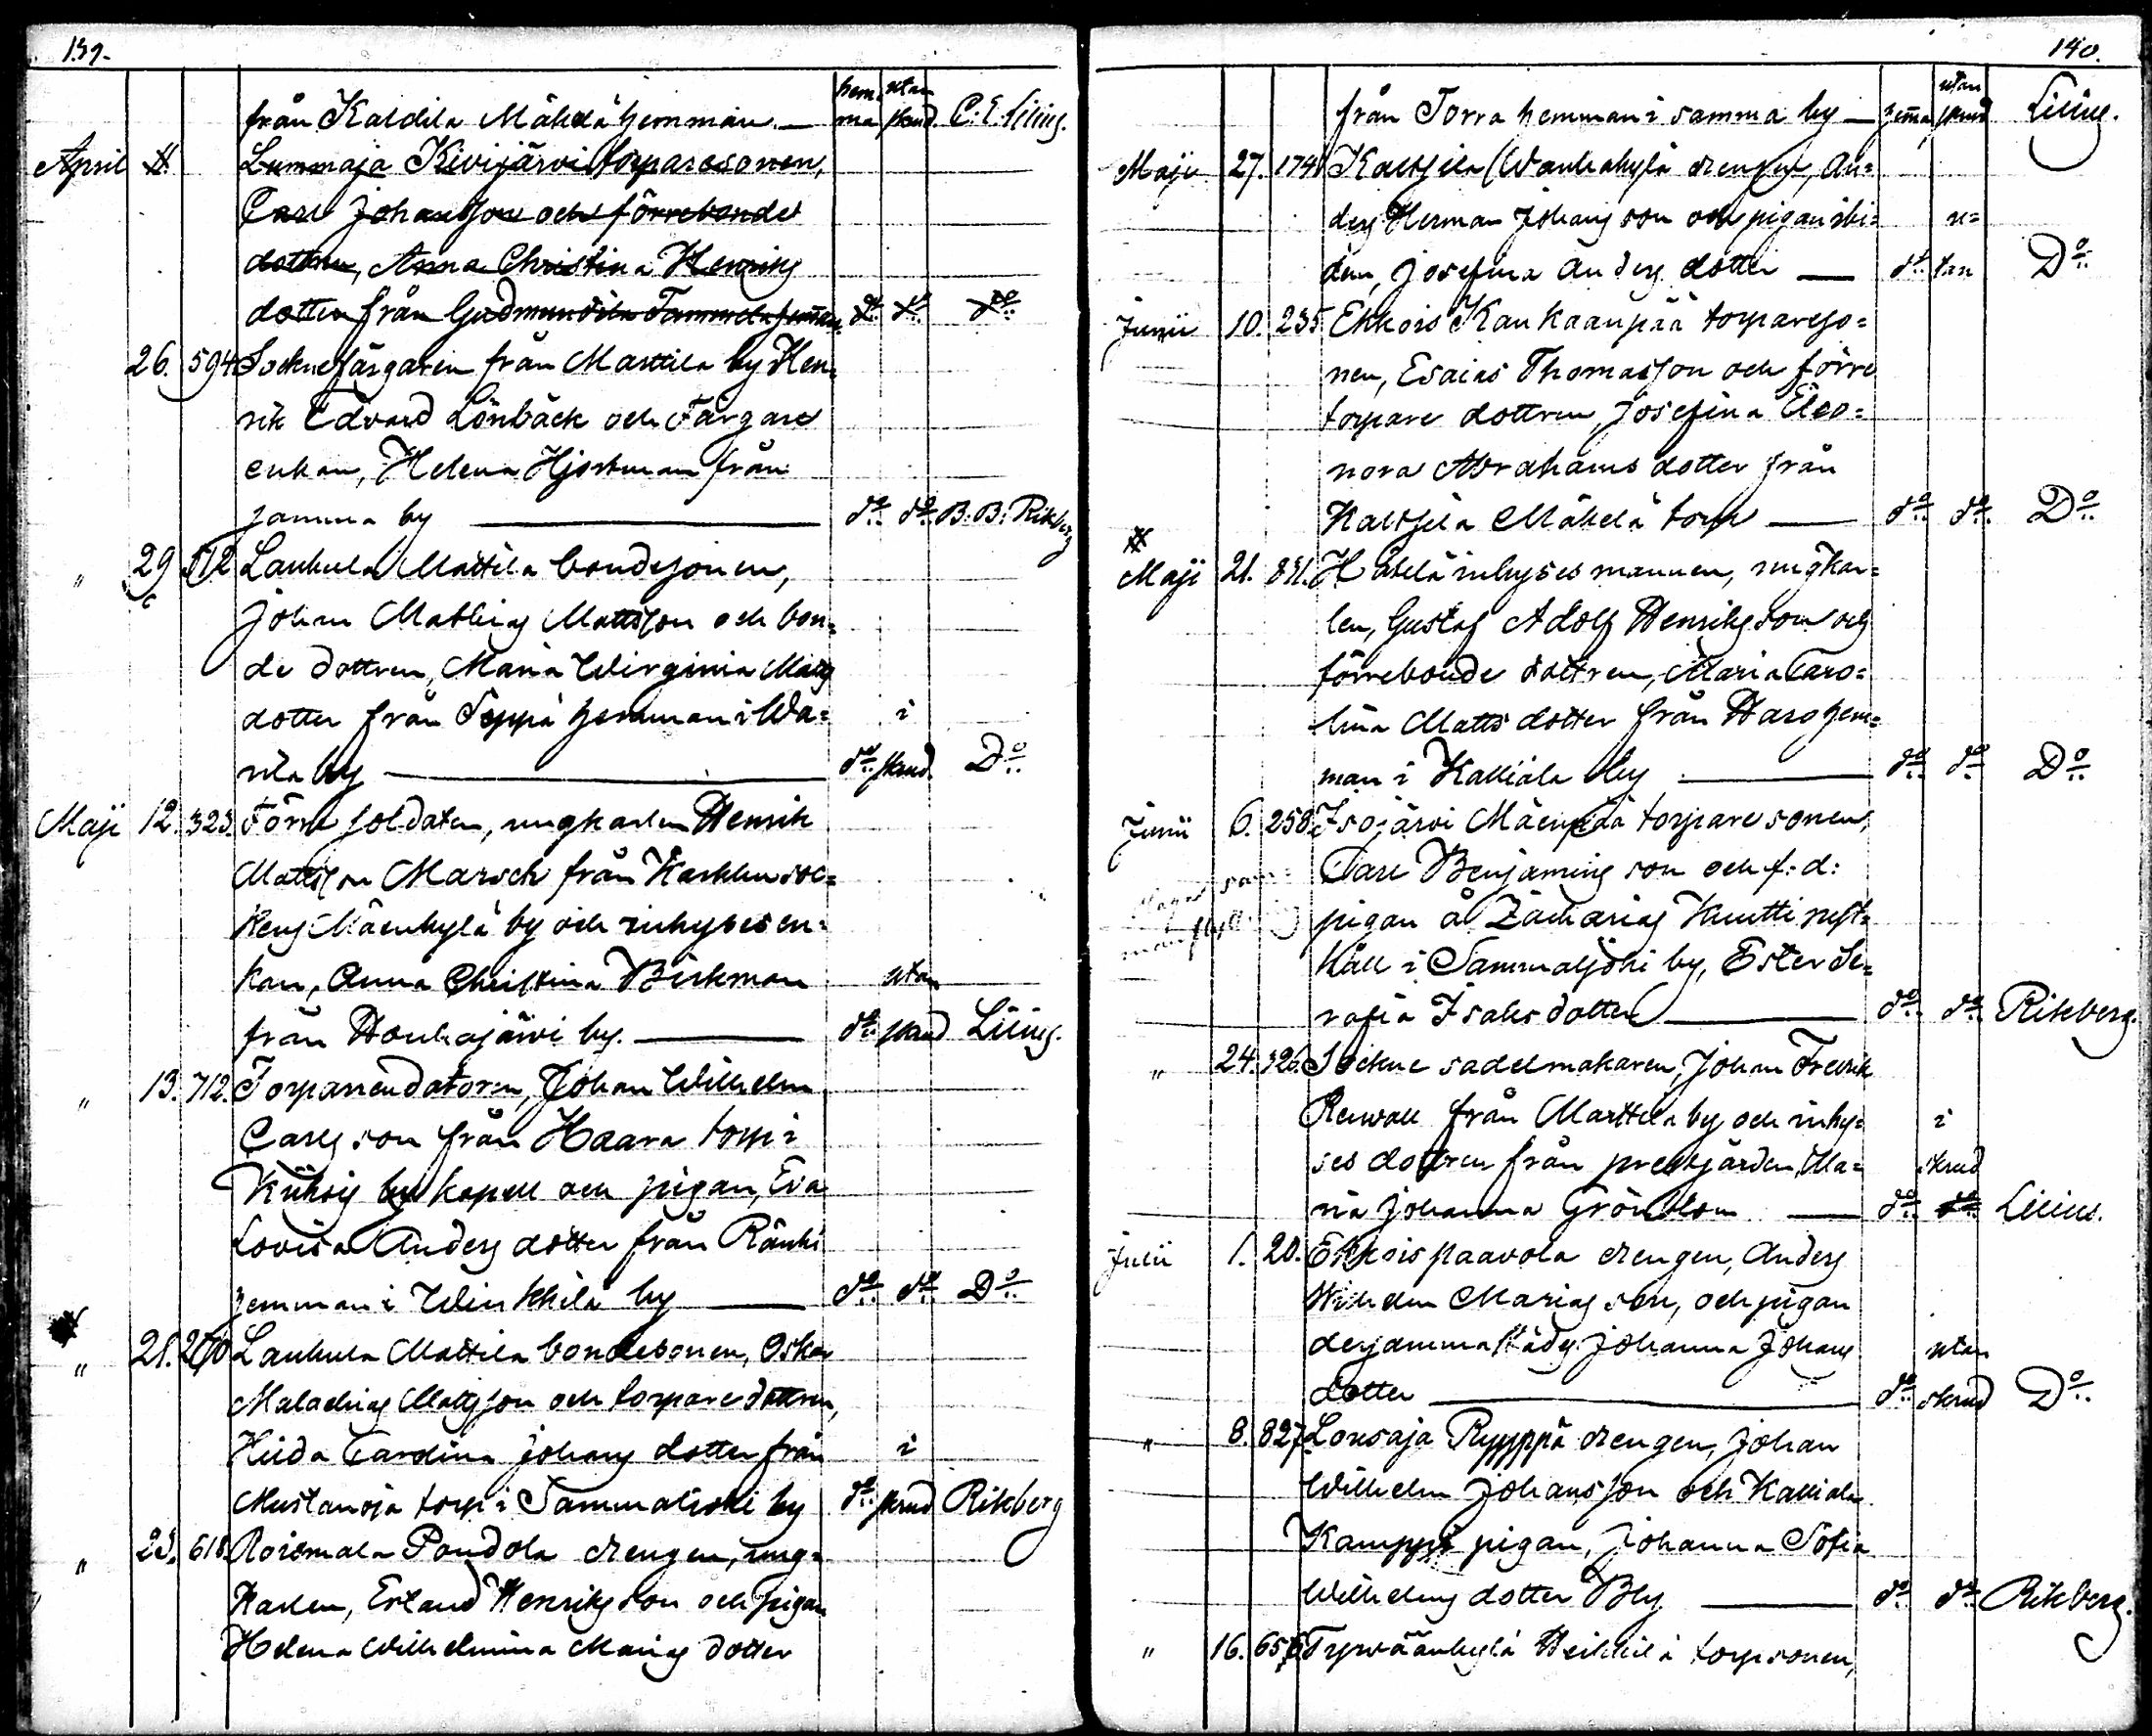 139.
från Kaldila Mäkelä hemman — hemma utan skrud. C. E. Lilius.
April Lummaja Kivijärvi torparesonen,
Carl Johansson och förrebonde
dottren, Anna Christina Henriks
dotter från Gudmundila Tammela hemman do do do
26. 594 Socknefärgaren från Marttila by Hen=
rik Edvard Lönbäck och Färgare
enkan, Helena Hjortman från
samma by — do do B: B: Rikberg
" 29 512 Laukula Mattila bondesonen,
Johan Mathias Mattsson och bon=
de dottren, Maria Wirginia Matts
dotter från Seppä hemman i Wa= i
rila by — do skrud Do
Maji 12. 323. Förre soldaten, ungkarlen Henrik
Mattsson Marsch från Karkku soc=
kens Mäenkylä by och inhyses en=
kan, Anna Christina Birkman utan
från Houhajärvi by. — do skrud Lilius.
" 13. 712. Torparen datorn, Johan Wilhelm
Carlsson från Haara torp i
Kiikois kapell och pigan, Eva
Lovisa Anders dotter från Ränki
hemman i Winkkilä by — do do Do
" 21. 270 Laukula Mattila bondesonen, Oskar
Malachias Mattsson och torpare dottren,
Hilda Carolina Johans dotter från i
Mustanoja torp i Sammaljoki by do skrud Rikberg
" 23. 618. Roismala Pondola drengen, ung=
karlen, Erland Henriksson och pigan
Helena Wilhelmina Marias dotter
140.
från Torra hemman i samma by — hemma utan skrud Lilius.
Maji 27. 174 Kaltsila Wanhakylä drengen, An=
ders Herman Johansson och pigan ibi= u=
dem, Josefina Anders dotter — do tan Do
Junii 10. 235. Ekkois Kankaanpää torpareso=
nen, Esaias Thomasson och förre
torpare dottren, Josefina Eleo=
nora Abrahams dotter från
Kaltsila Mäkelä torp — do do Do
Maji 21. 831. Häkelä inhyses mannen, ungkar=
len, Gustaf Adolf Henriksson och
förrebonde dottren, Maria Caro=
lina Matts dotter från Haro hem=
man i Kalliala by — do do Do
Junii 6. 258. Isojärvi Mäenpää torpare sonen,
Carl Benjaminsson och f: d:
pigan å Zacharias Knutti nyst=
häll i Sammaljoki by, Ester Se=
rafia Isaks dotter — do do Rikberg.
" 24. 326. Sockne sadelmakaren, Johan Fredrik
Renvall från Marttila by och inhy= i
ses dottren från prestgården, Ma= skrud
ria Johanna Grönblom — do do Lilius.
Julii 1. 20. Ekkois paavola drengen, Anders
Wilhelm Mariasson, och pigan
dersammastädes Johanna Johans utan
dotter — do skrud Do
" 8. 827. Lousaja Ryyppä drengen, Johan
Wilhelm Johansson och Kalliala
Kamppi pigan, Johanna Sofia
Wilhelms dotter Bly — do do Rikberg.
" 16. 655 Tyrväänkylä Heikkilä torpsonen,